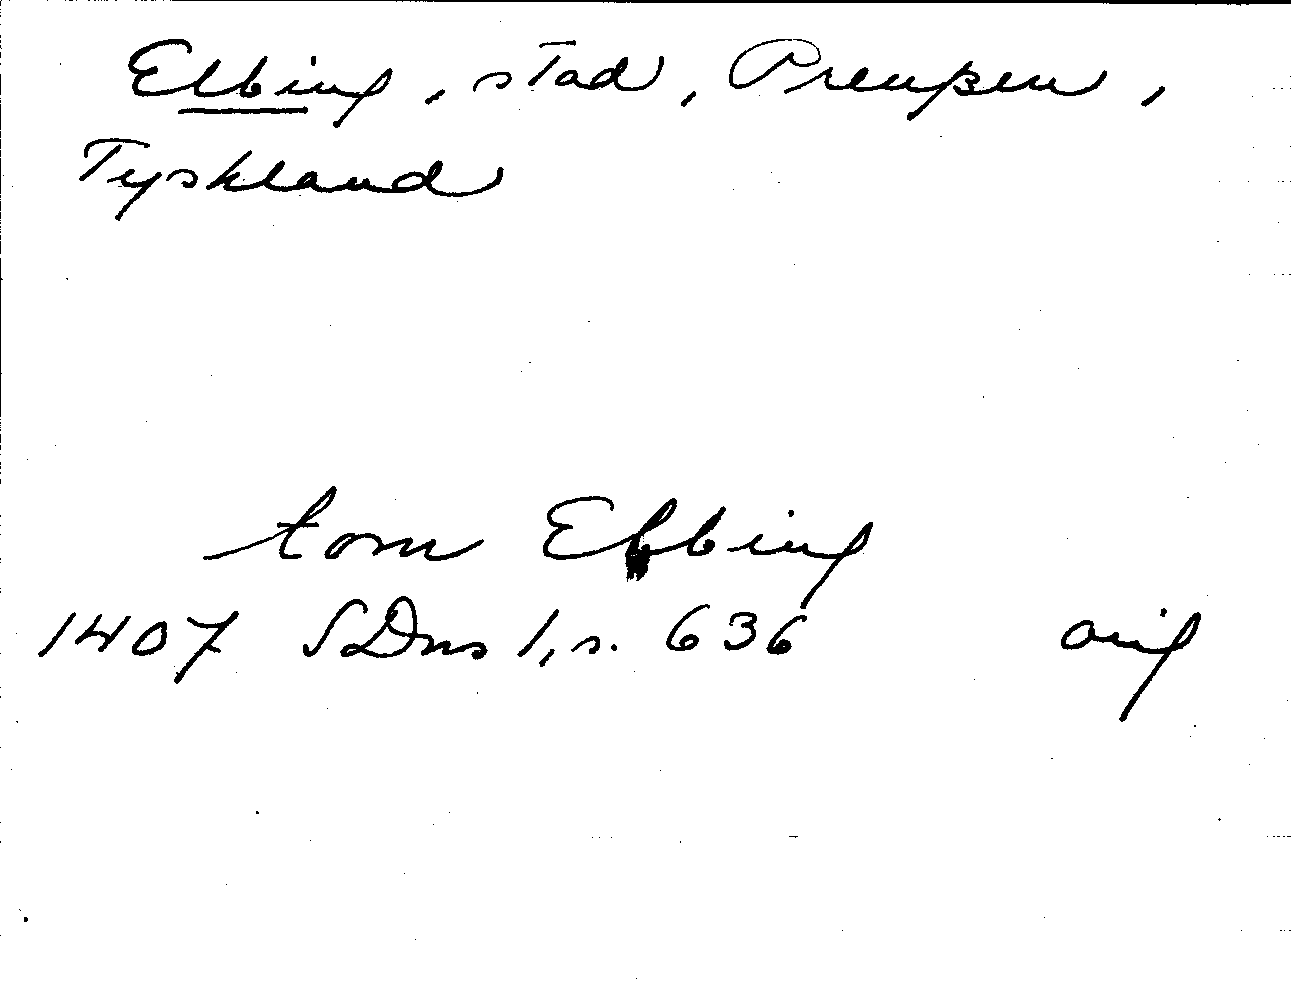 Elbing, stad, Preußen,
Tyskland
tom Elbing
1407 SDns 1, s. 636 orig